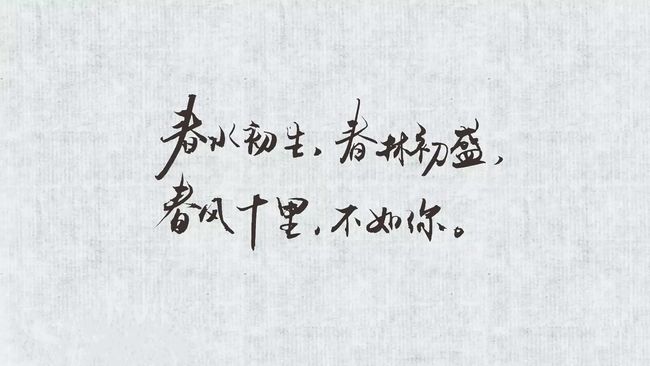 春水初生，春林初盛，
春风十里，不如你。